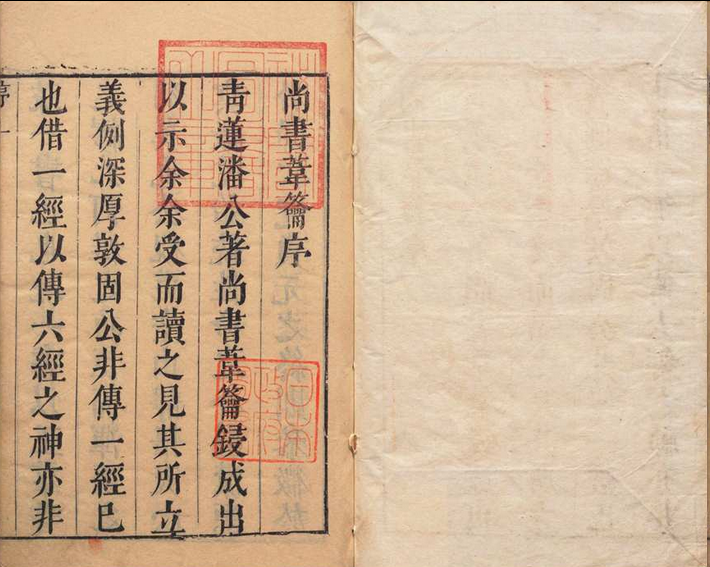 尚書葦籥序
青蓮潘公著尚書葦籥鋟成出
以示余余受而讀之見其所立
義例深厚敦固公非傳一經已
也借一經以傳六經之神亦非
序一